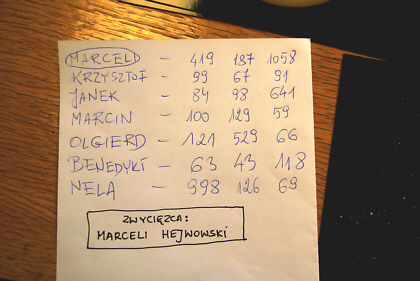 MARCELI - 419 187 1058
KRZYSZTOF - 99 67 91
JANEK - 84 98 641
MARCIN - 100 129 59
OLGIERD - 121 529 66
BENEDYKT - 63 43 118
NELA - 998 126 69
ZWYCIĘZCA:
MARCELI HEJWOWSKI